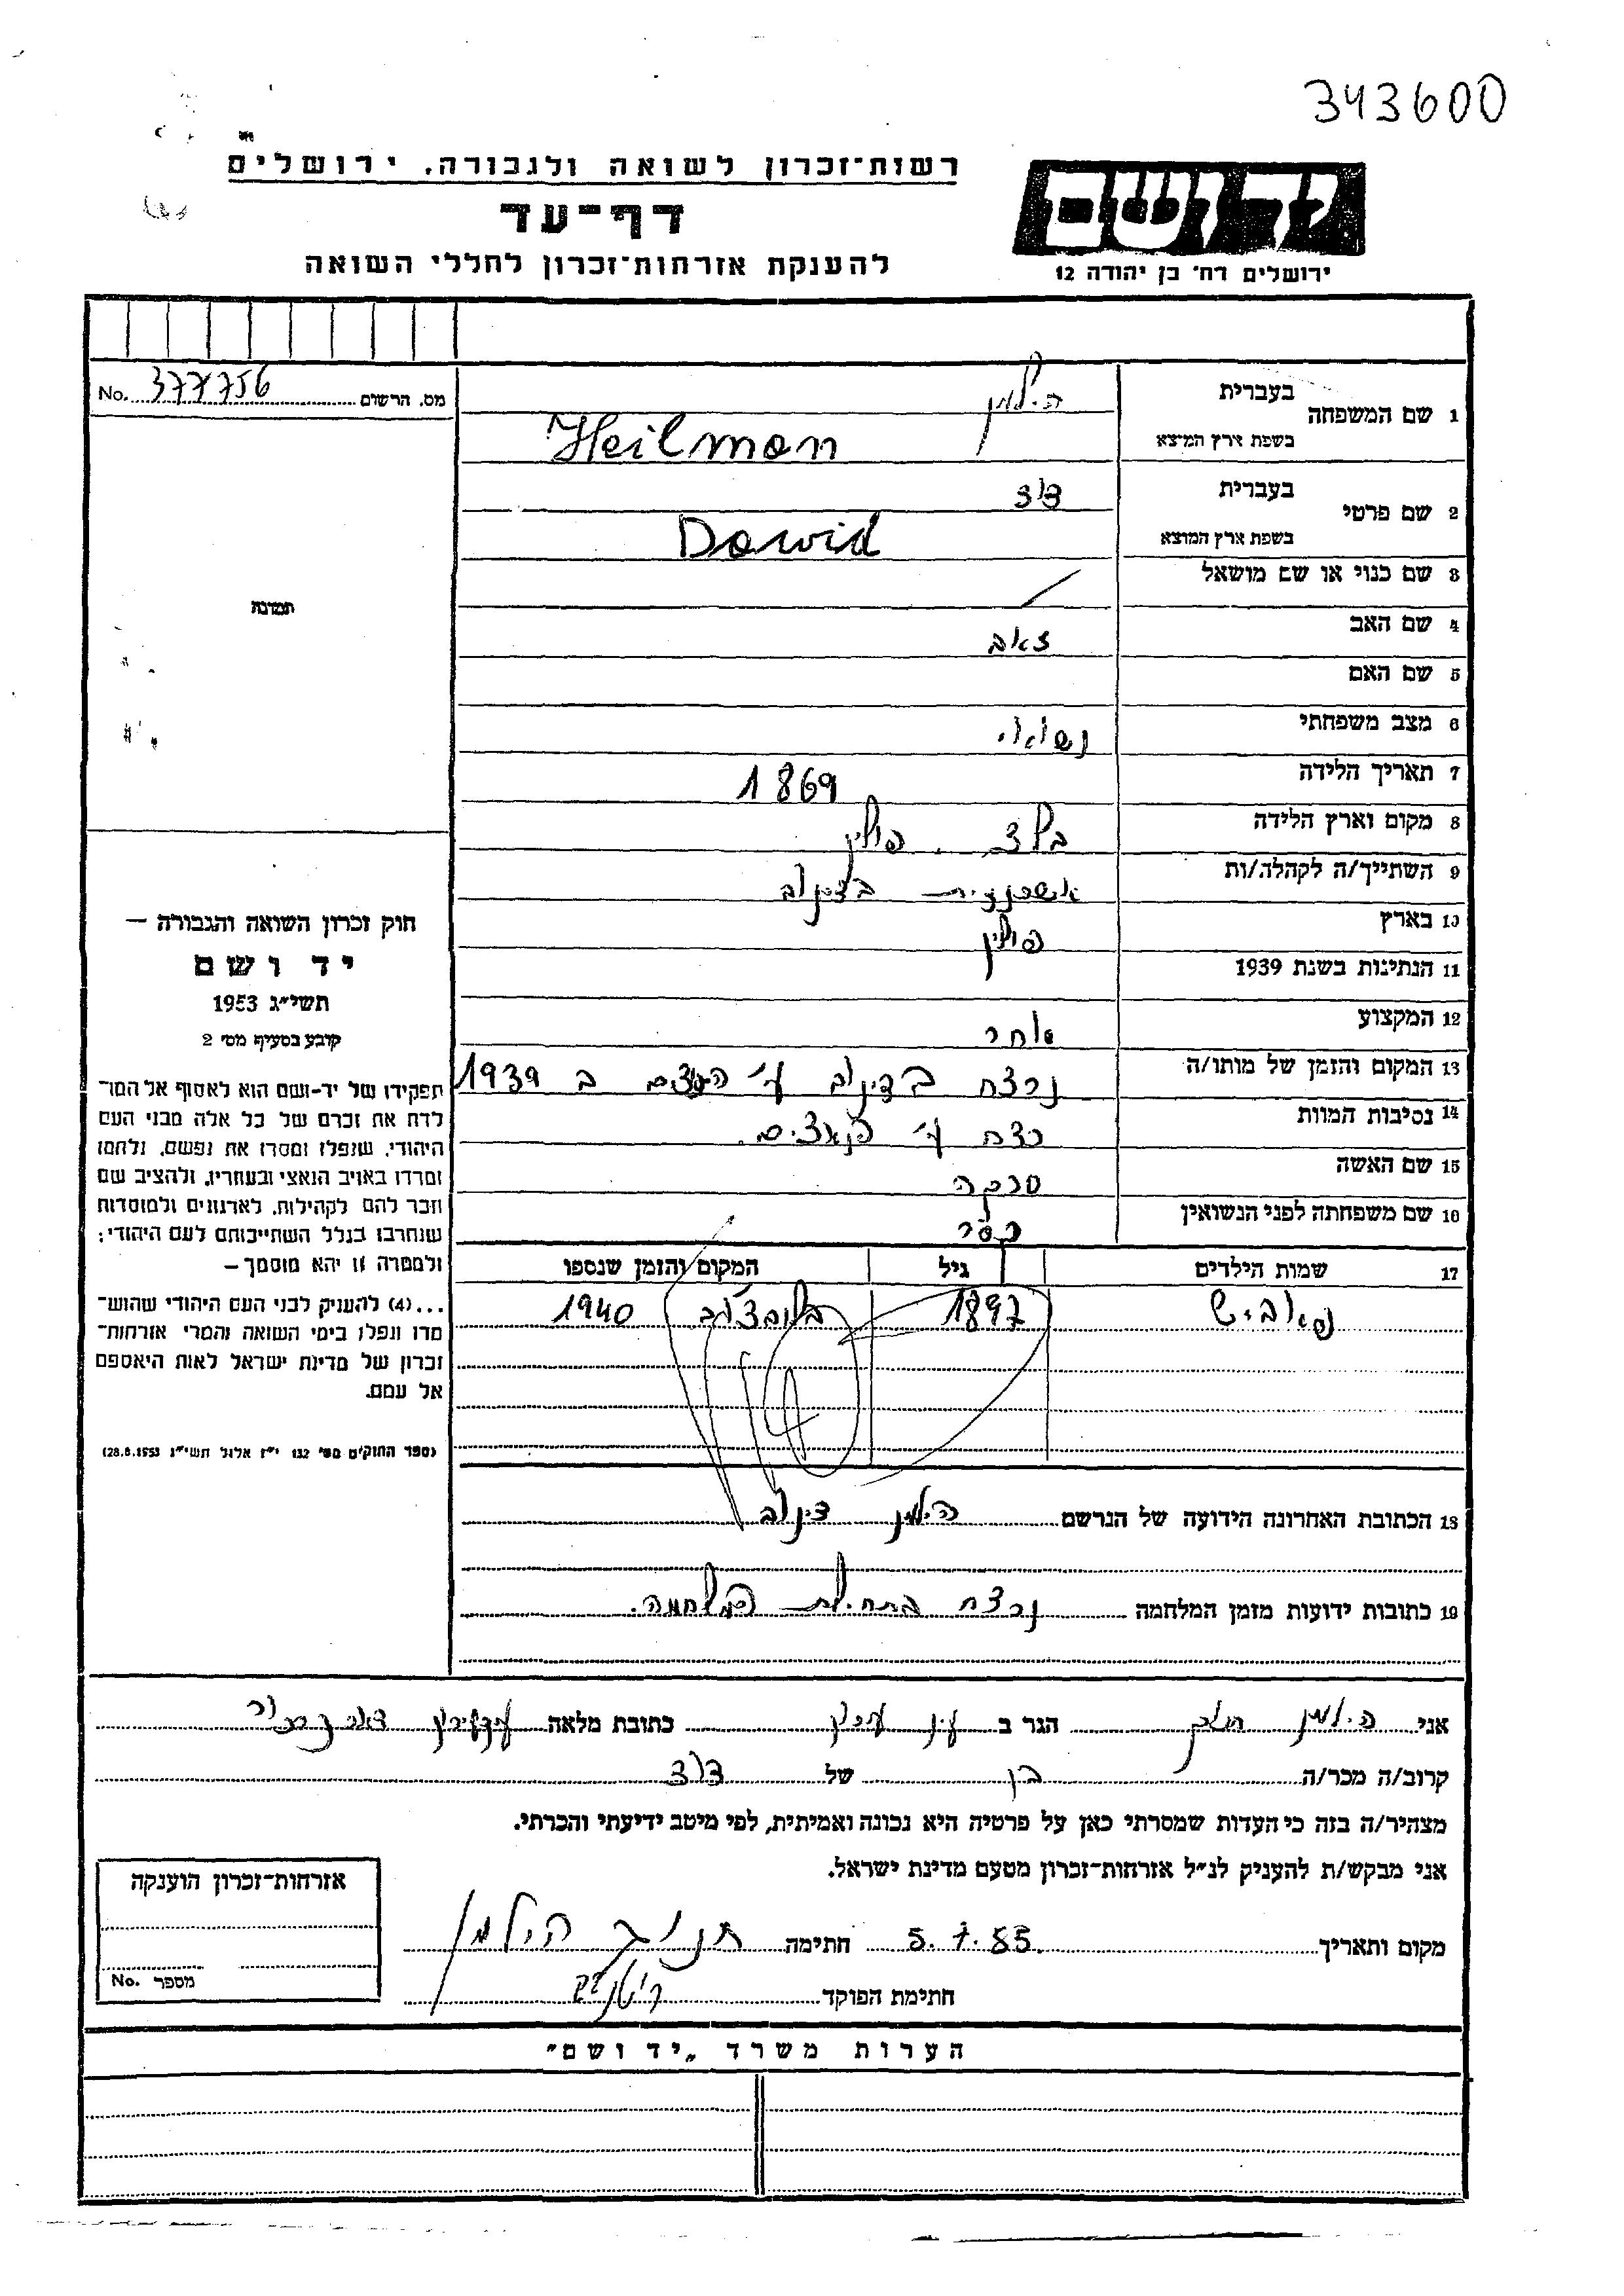 343600
רשות־זכרון לשואה ולגבורה. ירושלים
יד ושם
דף־עד
להענקת אזרחות־זכרון לחללי השואה
ירושלים רח׳ בן יהודה 12
מס. הרשום 377756 No.
תמונה
1 שם המשפחה
בעברית הילמן
בשפת ארץ המוצא Heilman
2 שם פרטי
בעברית דוד
בשפת ארץ המוצא Dawid
3 שם כנוי או שם מושאל /
4 שם האב זאב
5 שם האם
6 מצב משפחתי נשואי
7 תאריך הלידה 1869
8 מקום וארץ הלידה בלז. פולין
9 השתייך/ה לקהלה/ות אשכנזית בדינוב
10 בארץ פולין
11 הנתינות בשנת 1939
12 המקצוע סוחר
13 המקום והזמן של מותו/ה נרצח בדינוב ע״י הנאצים ב 1939
14 נסיבות המוות נרצח ע״י הנאצים.
15 שם האשה
16 שם משפחתה לפני הנשואין
17 שמות הילדים גיל המקום והזמן שנספו
1897 1940
18 הכתובת האחרונה הידועה של הנרשם הילמן דינוב
19 כתובות ידועות מזמן המלחמה נרצח בתחילת המלחמה.
חוק זכרון השואה והגבורה –
יד ושם
תשי״ג 1953
קובע בסעיף מס׳ 2
תפקידו של יד-ושם הוא לאסוף אל המו־
לדת את זכרם של כל אלה מבני העם
היהודי, שנפלו ומסרו את נפשם, נלחמו
ומרדו באויב הנאצי ובעוזריו, ולהציב שם
וזכר להם לקהילות, לארגונים ולמוסדות
שנחרבו בגלל השתייכותם לעם היהודי;
ולמטרה זו יהא מוסמך –
...(4) להעניק לבני העם היהודי שהוש־
מדו ונפלו בימי השואה והמרי אזרחות־
זכרון של מדינת ישראל לאות היאספם
אל עמם.
(ספר החוקים מס׳ 132 י״ז אלול תשי״ג 28.8.1953)
אני הילמן הגר ב עין כתובת מלאה
קרוב/ה מכר/ה בן של דוד
מצהיר/ה בזה כי העדות שמסרתי כאן על פרטיה היא נכונה ואמיתית, לפי מיטב ידיעתי והכרתי.
אני מבקש/ת להעניק לנ״ל אזרחות־זכרון מטעם מדינת ישראל.
מקום ותאריך 5.7.85 חתימה הילמן
חתימת הפוקד
אזרחות־זכרון הוענקה
מספר No.
הערות משרד „יד ושם״